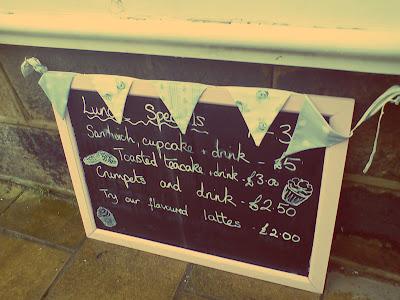 Lunch Specials 12-3
Sandwich, cupcake + drink - £5
Toasted teacake + drink - £3.00
Crumpets and drink - £2.50
Try our flavoured lattes - £2.00